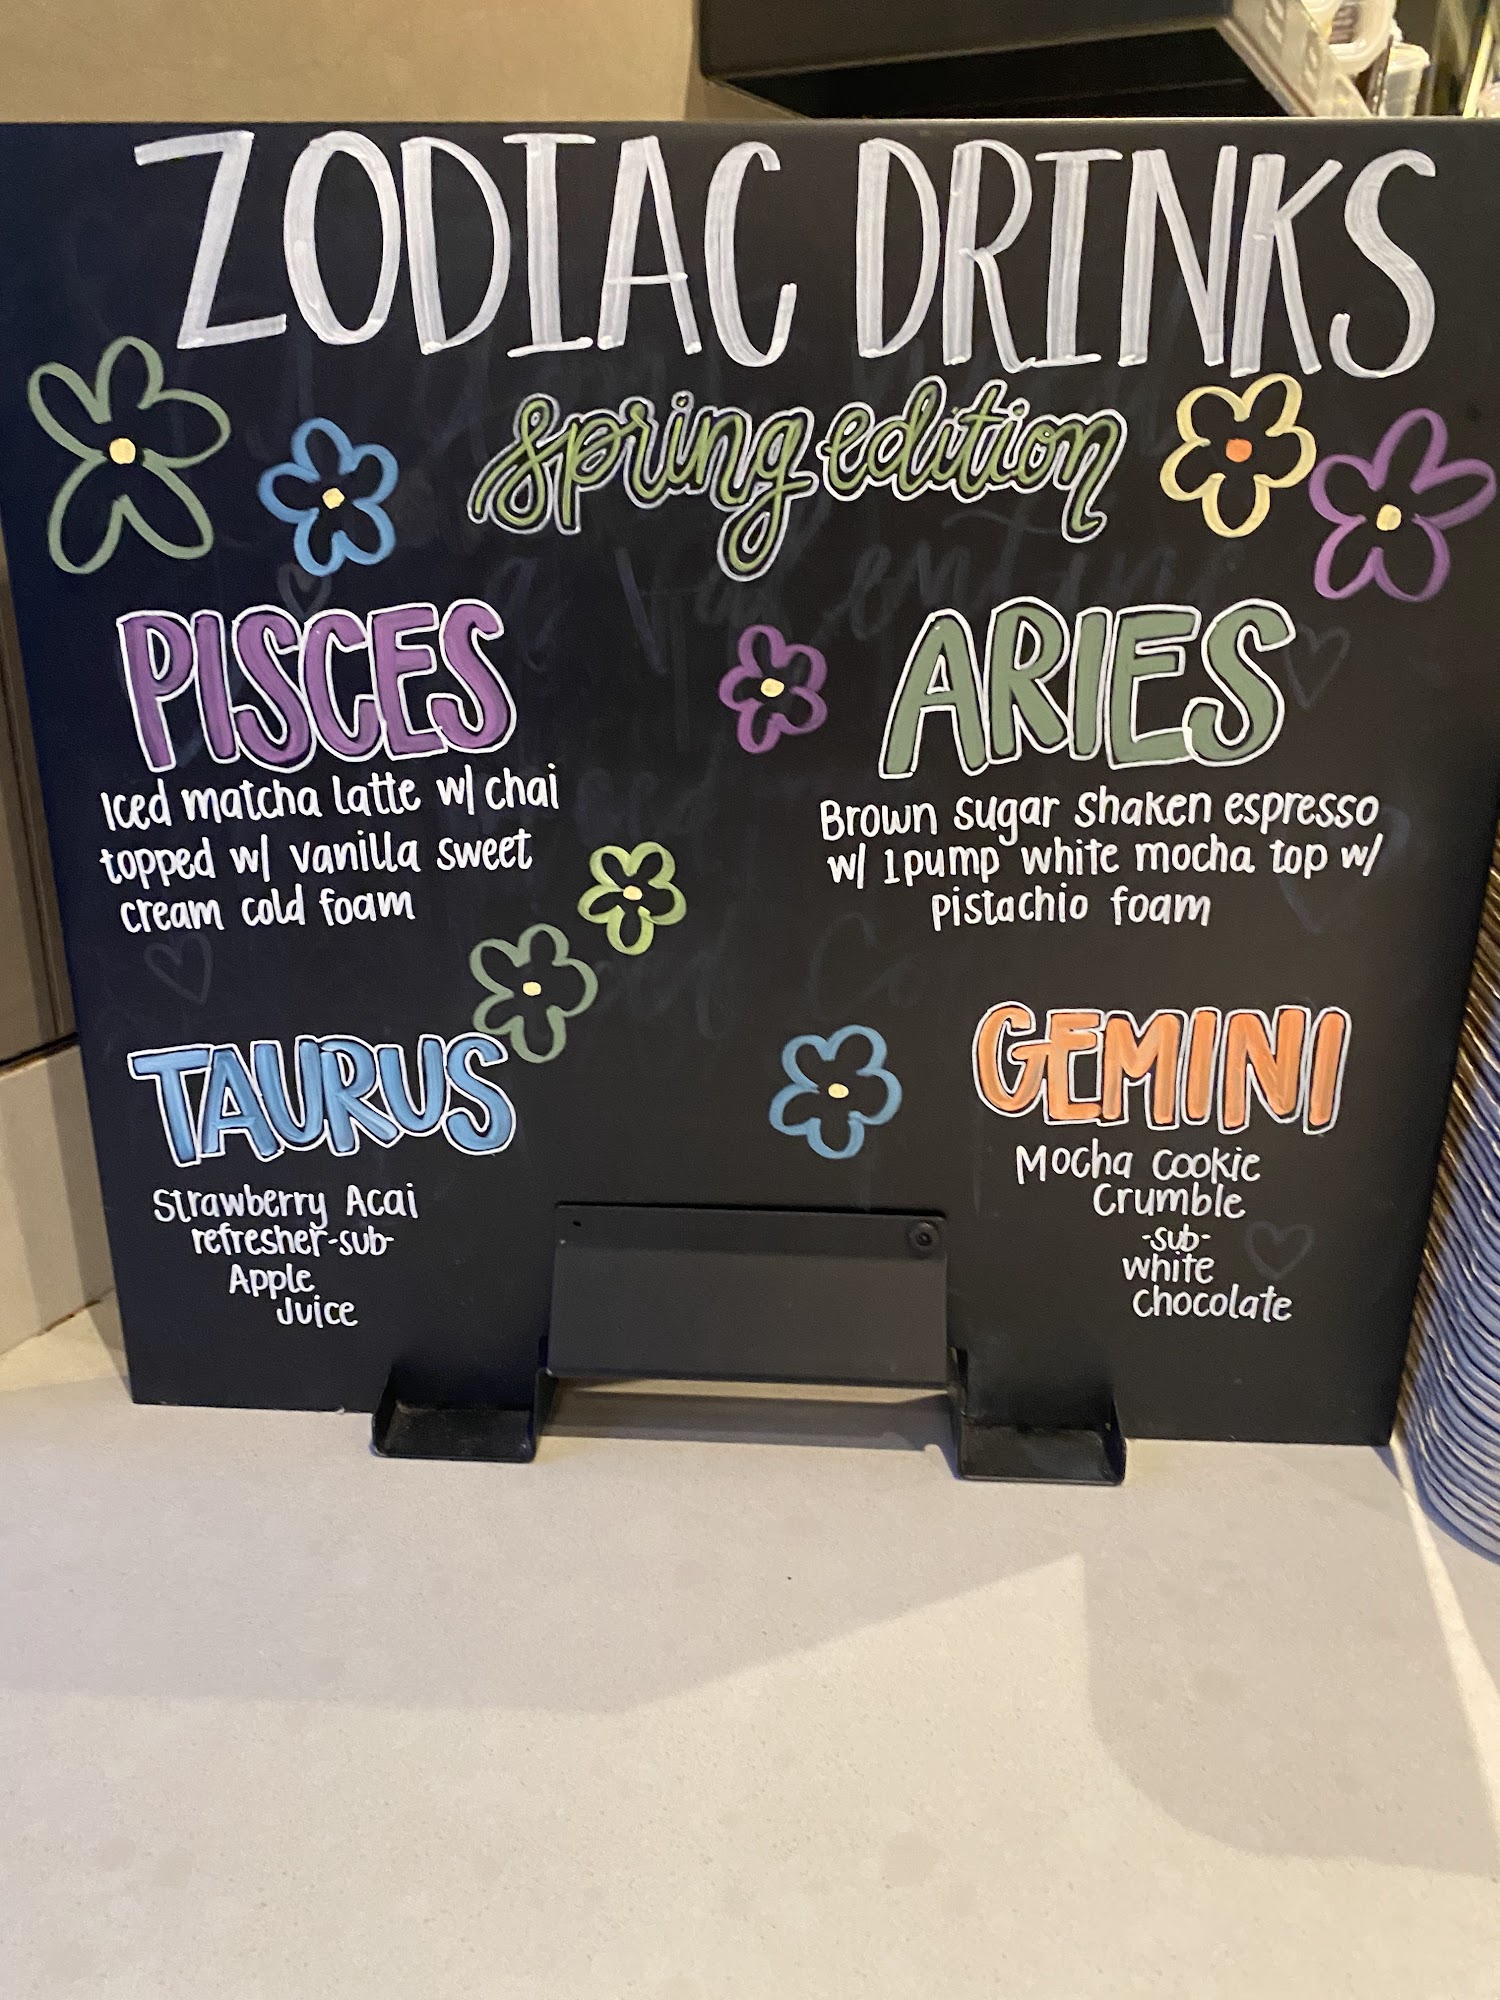 ZODIAC DRINKS
spring edition
PISCES
Iced matcha latte w/ chai
topped w/ vanilla sweet
cream cold foam
ARIES
Brown sugar shaken espresso
w/ 1 pump white mocha top w/
pistachio foam
TAURUS
Strawberry Acai
refresher -sub-
Apple
Juice
GEMINI
Mocha cookie
Crumble
-sub-
white
Chocolate